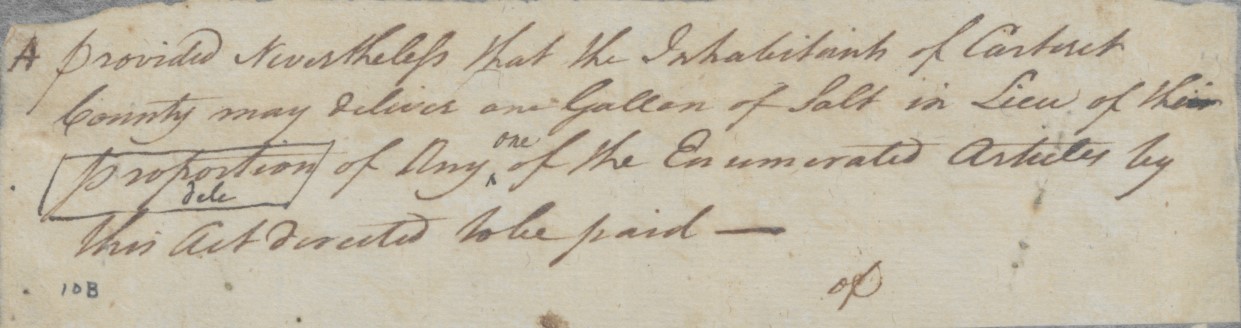 A provided Nevertheless that the Inhabitants of Carteret
County may deliver one Gallon of Salt in Lieu of their
proportion of Any one of the Enumerated Articles by
dele
this Act directed to be paid —
10B